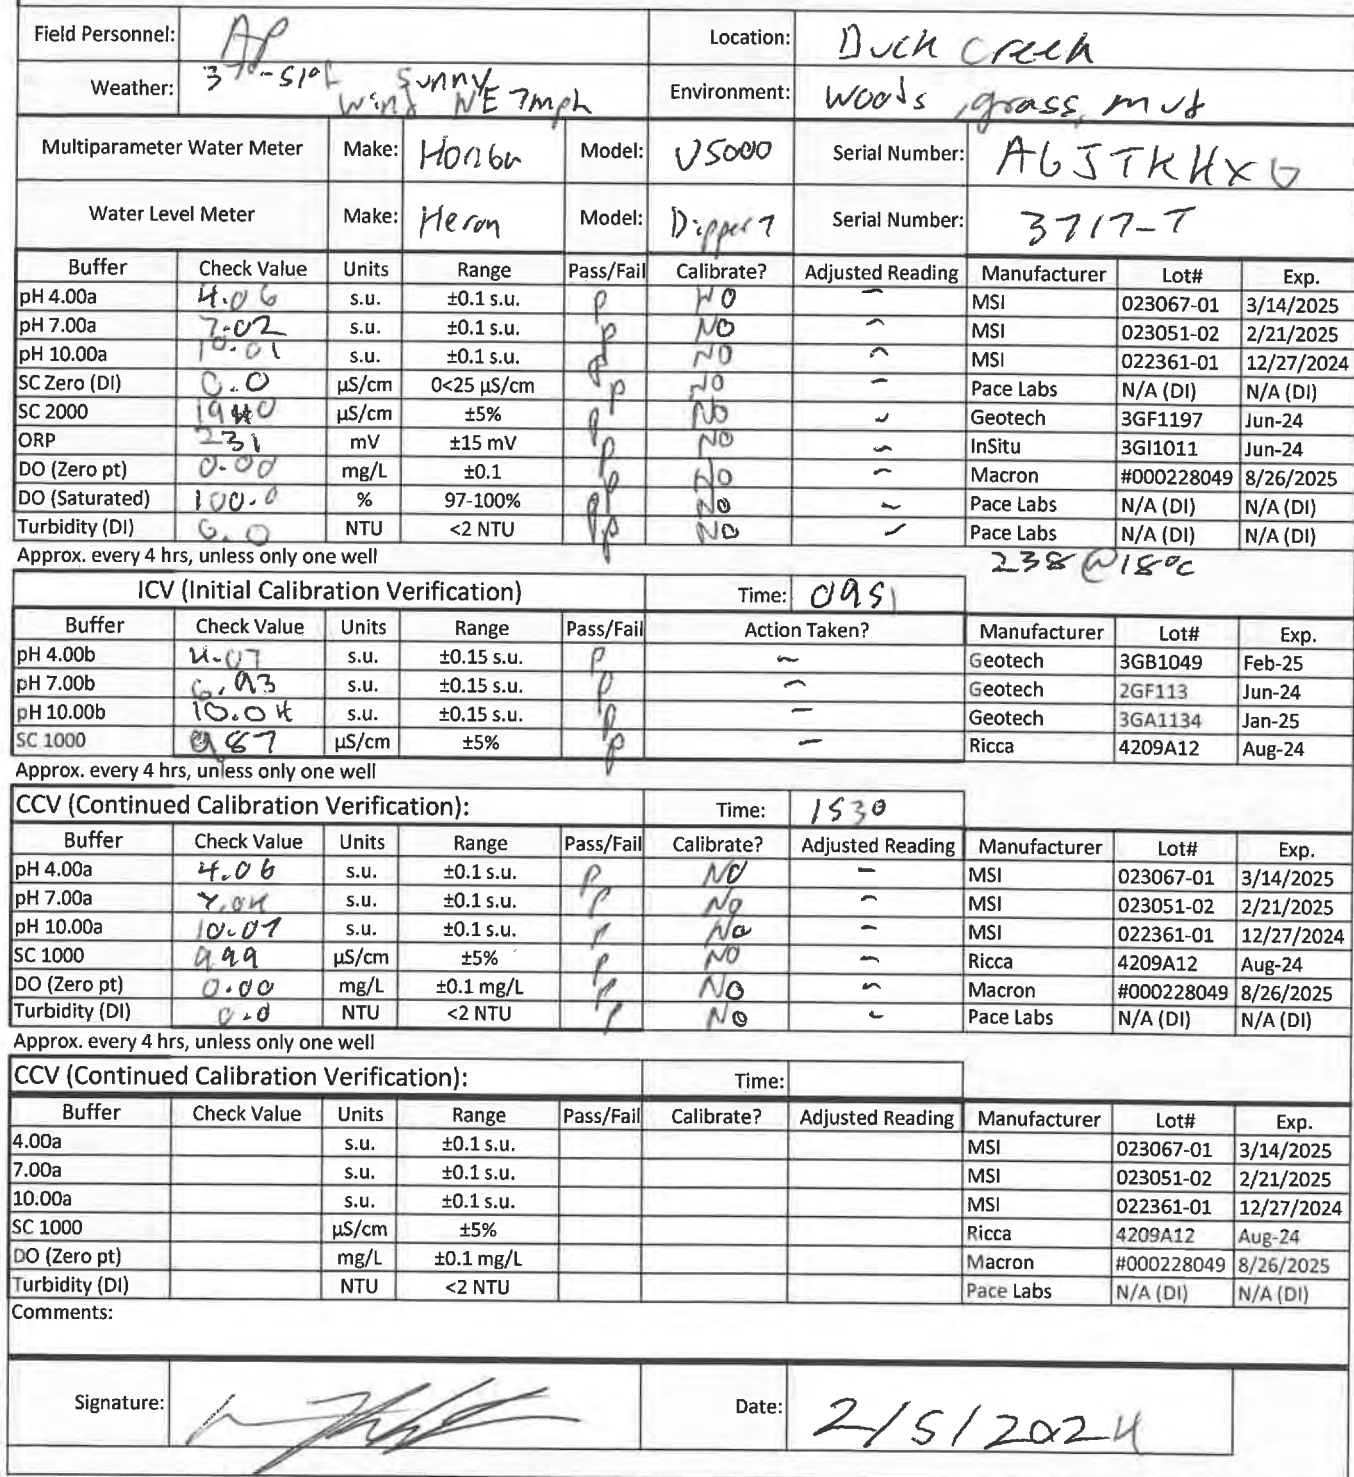 Field Personnel: AP Location: Duck Creek
Weather: 37°-51°F Sunny Wind NE 7mph Environment: Woods, grass, mud
Multiparameter Water Meter Make: Horiba Model: U5000 Serial Number: AGJTKHXG
Water Level Meter Make: Heron Model: Dipper T Serial Number: 3717-T
Buffer Check Value Units Range Pass/Fail Calibrate? Adjusted Reading Manufacturer Lot# Exp.
pH 4.00a 4.06 s.u. ±0.1 s.u. P NO - MSI 023067-01 3/14/2025
pH 7.00a 7.02 s.u. ±0.1 s.u. P NO - MSI 023051-02 2/21/2025
pH 10.00a 10.01 s.u. ±0.1 s.u. P NO - MSI 022361-01 12/27/2024
SC Zero (DI) 0.0 µS/cm 0<25 µS/cm P NO - Pace Labs N/A (DI) N/A (DI)
SC 2000 1940 µS/cm ±5% P NO - Geotech 3GF1197 Jun-24
ORP 231 mV ±15 mV P NO - InSitu 3GI1011 Jun-24
DO (Zero pt) 0.00 mg/L ±0.1 P NO - Macron #000228049 8/26/2025
DO (Saturated) 100.0 % 97-100% P NO - Pace Labs N/A (DI) N/A (DI)
Turbidity (DI) 0.0 NTU <2 NTU P NO - Pace Labs N/A (DI) N/A (DI)
Approx. every 4 hrs, unless only one well
238 @ 18°C
ICV (Initial Calibration Verification) Time: 0951
Buffer Check Value Units Range Pass/Fail Action Taken? Manufacturer Lot# Exp.
pH 4.00b 4.07 s.u. ±0.15 s.u. P - Geotech 3GB1049 Feb-25
pH 7.00b 6.93 s.u. ±0.15 s.u. P - Geotech 2GF113 Jun-24
pH 10.00b 10.04 s.u. ±0.15 s.u. P - Geotech 3GA1134 Jan-25
SC 1000 987 µS/cm ±5% P - Ricca 4209A12 Aug-24
Approx. every 4 hrs, unless only one well
CCV (Continued Calibration Verification): Time: 1530
Buffer Check Value Units Range Pass/Fail Calibrate? Adjusted Reading Manufacturer Lot# Exp.
pH 4.00a 4.06 s.u. ±0.1 s.u. P NO - MSI 023067-01 3/14/2025
pH 7.00a 7.04 s.u. ±0.1 s.u. P No - MSI 023051-02 2/21/2025
pH 10.00a 10.07 s.u. ±0.1 s.u. P No - MSI 022361-01 12/27/2024
SC 1000 999 µS/cm ±5% P NO - Ricca 4209A12 Aug-24
DO (Zero pt) 0.00 mg/L ±0.1 mg/L P NO - Macron #000228049 8/26/2025
Turbidity (DI) 0.0 NTU <2 NTU P No - Pace Labs N/A (DI) N/A (DI)
Approx. every 4 hrs, unless only one well
CCV (Continued Calibration Verification): Time:
Buffer Check Value Units Range Pass/Fail Calibrate? Adjusted Reading Manufacturer Lot# Exp.
4.00a s.u. ±0.1 s.u. MSI 023067-01 3/14/2025
7.00a s.u. ±0.1 s.u. MSI 023051-02 2/21/2025
10.00a s.u. ±0.1 s.u. MSI 022361-01 12/27/2024
SC 1000 µS/cm ±5% Ricca 4209A12 Aug-24
DO (Zero pt) mg/L ±0.1 mg/L Macron #000228049 8/26/2025
Turbidity (DI) NTU <2 NTU Pace Labs N/A (DI) N/A (DI)
Comments:
Signature: Date: 2/5/2024